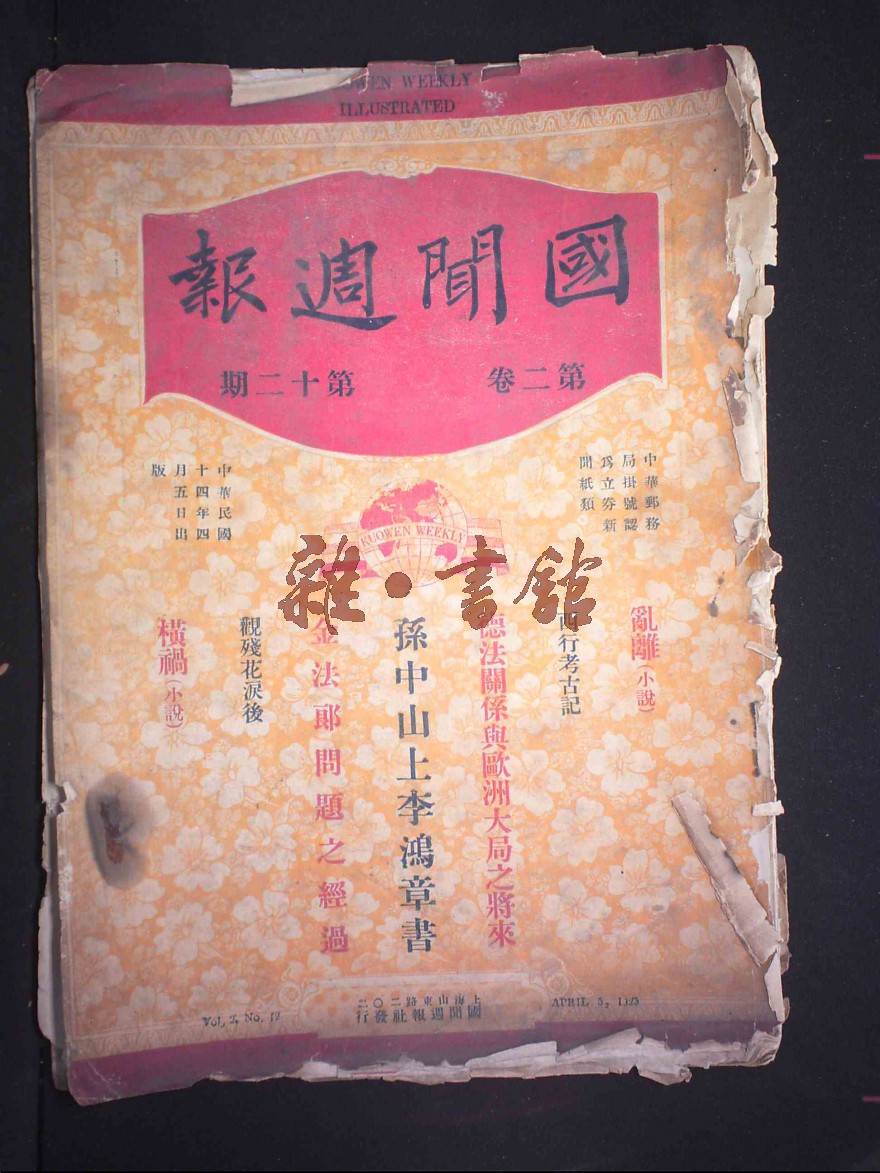 KUOWEN WEEKLY
ILLUSTRATED
國聞週報
第二卷
第十二期
中華郵務
局掛號認
為立券新
聞紙類
中華民國
十四年四
月五日出
版
KUOWEN WEEKLY
雜·書館
亂離(小說)
西行考古記
德法關係與歐洲大局之將來
孫中山上李鴻章書
金法郎問題之經過
觀殘花淚後
橫禍(小說)
Vol. 2, No. 12
上海山東路二〇二
國聞週報社發行
APRIL 5, 1925